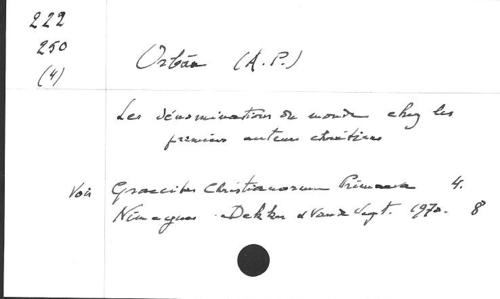 222
250
(4)
Orbán (A.P.)
Les dénominations du monde chez les
premiers auteurs chrétiens
Voir Graecitas Christianorum Primaeva 4.
Nimègue Dekker & Van de Vegt. 1970. 8